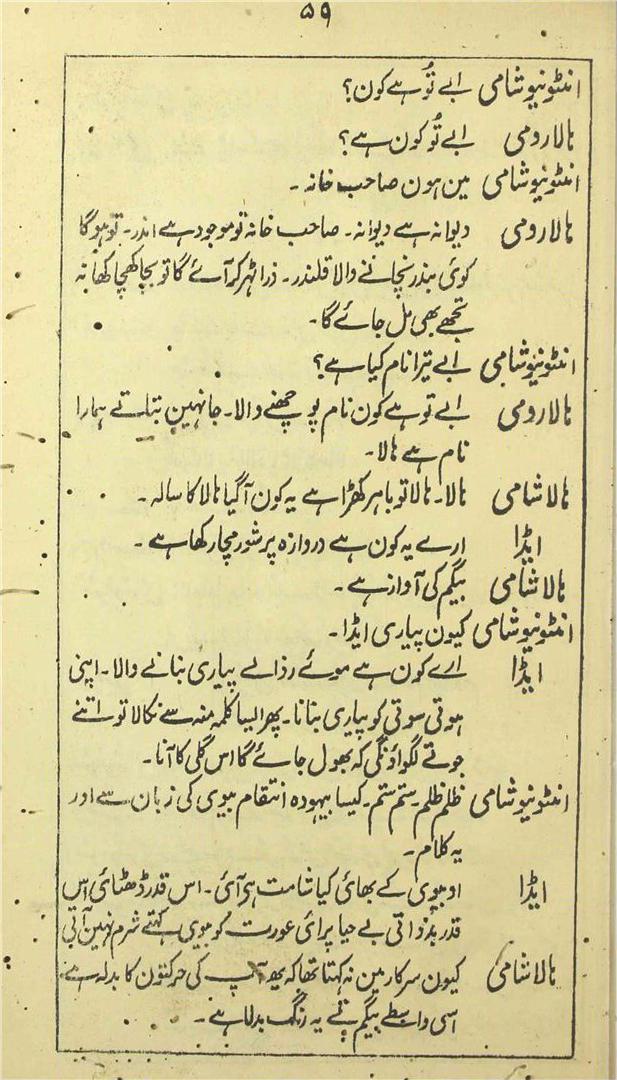 ۵۹
انٹونیو شامی ابے تُو ہے کون؟
ہالا رومی ابے تُو کون ہے؟
انٹونیو شامی مین ہون صاحب خانہ۔
ہالا رومی دیوانہ ہے دیوانہ۔ صاحب خانہ تو موجود ہے اندر۔ تو ہو گا
کوئی بندر نچانے والا قلندر۔ ذرا ٹھر کر آئے گا تو بچا کھچا کھانہ
تجھے بھی مل جائے گا۔
انٹونیو شامی ابے تیرا نام کیا ہے؟
ہالا رومی ابے تو ہے کون نام پوچھنے والا۔ جا نہین بتاتے ہمارا
نام ہے ہالا۔
ہالا شامی ہالا۔ ہالا تو باہر کھڑا ہے یہ کون آگیا ہالا کا سالہ۔
ایڈا ارے یہ کون ہے دروازہ پر شور مچا رکھا ہے۔
ہالا شامی بیگم کی آواز ہے۔
انٹونیو شامی کیون پیاری ایڈا۔
ایڈا ارے کون ہے موئے رذالے پیاری بنانے والا۔ اپنی
ہوتی سوتی کو پیاری بنانا۔ پھر ایسا کلمہ منہ سے نکالا تو اتنے
جوتے لگواؤنگی کہ بھول جائے گا اس گلی کا آنا۔
انٹونیو شامی ظلم ظلم۔ ستم ستم۔ کیسا بیہودہ انتقام بیوی کی زبان سے اور
یہ کلام۔
ایڈا او بیوی کے بھائی کیا شامت ہی آئی۔ اس قدر ڈھٹائی اس
قدر بدذاتی بے حیا پرائی عورت کو بیوی کہتے شرم نہین آتی
ہالا شامی کیون سرکار مین نہ کہتا تھا کہ یہ آپ کی حرکتون کا بدلہ ہے
اسی واسطے بیگم نے یہ رنگ بدلا ہے۔